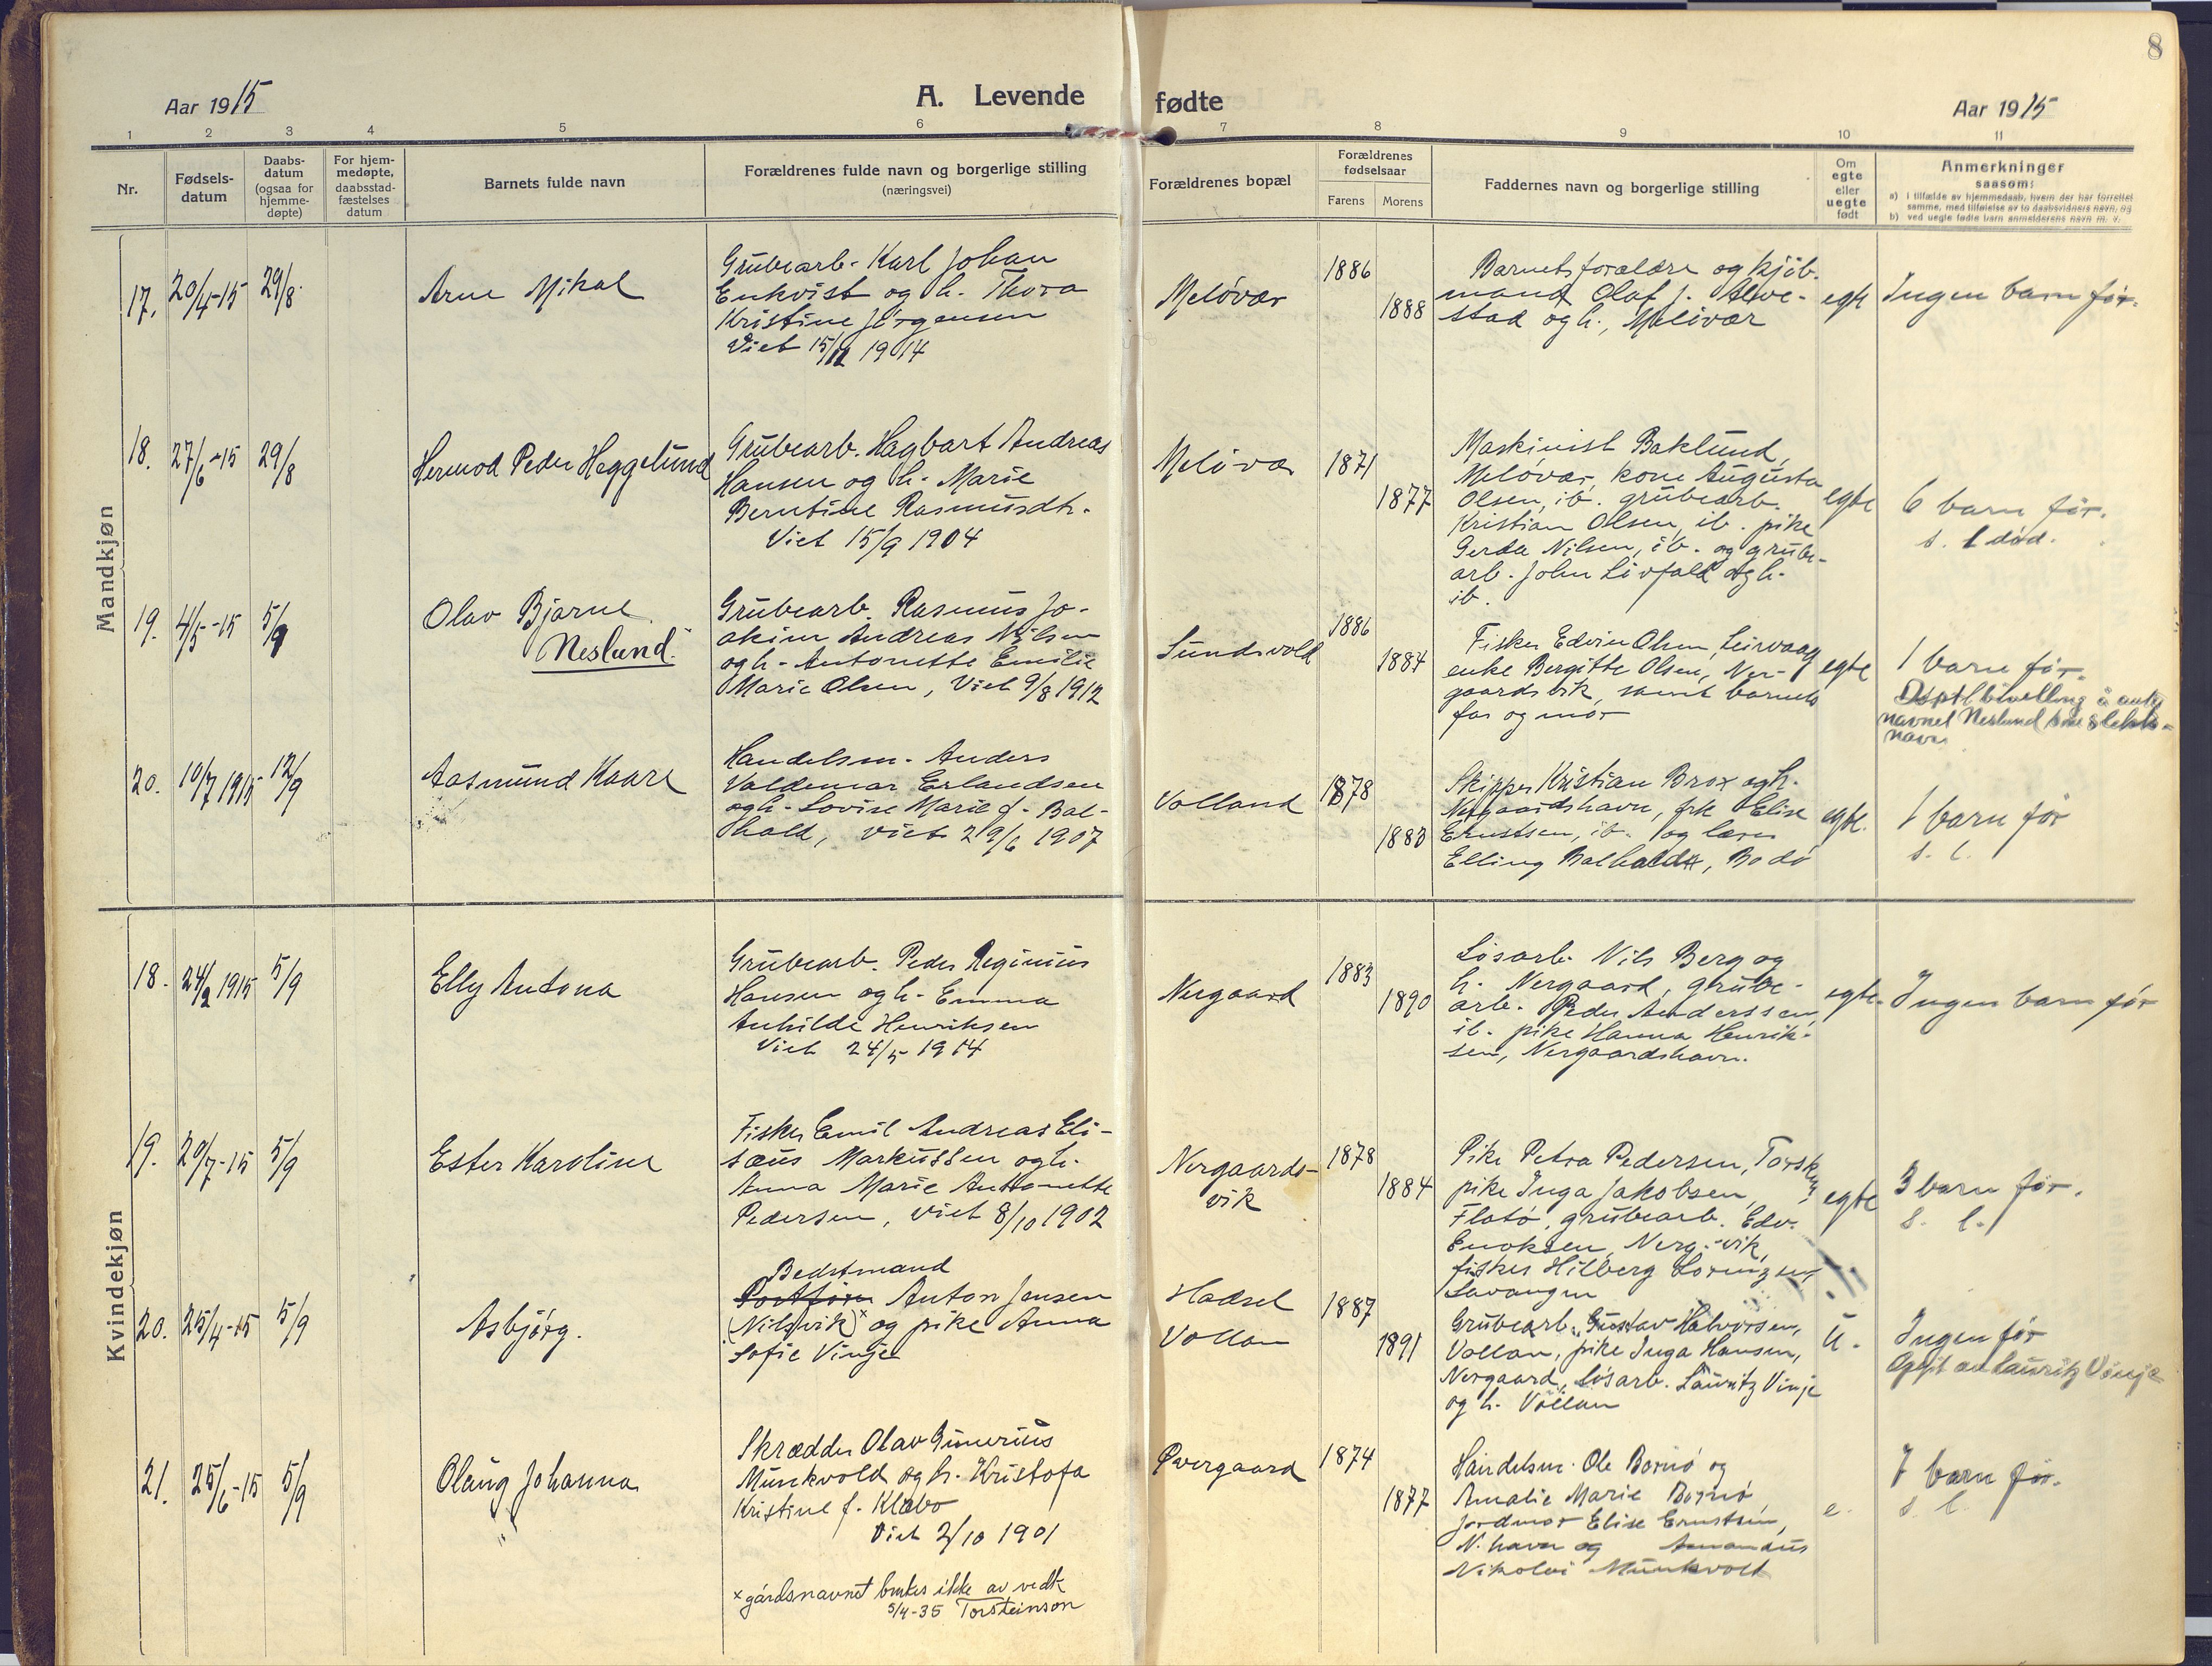 8
Aar 1915
A. Levende fødte
Aar 1915
1 2 3 4 5 6 7 8 9 10 11
Nr.
Fødsels-
datum
Daabs-
datum
(ogsaa for
hjemme-
døpte)
For hjem-
medøpte,
daabsstad-
fæstelses
datum
Barnets fulde navn
Forældrenes fulde navn og borgerlige stilling
(næringsvei)
Forældrenes bopæl
Forældrenes
fødselsaar
Farens Morens
Faddernes navn og borgerlige stilling
Om
egte
eller
uegte
født
Anmerkninger
saasom:
a) i tilfælde av hjemmedaab, hvem der har forrettet
samme, med tilføielse av to daabsvidners navn, og
b) ved uegte fødte barn anmelderens navn m. v.
Mandkjøn
17. 20/4-15 29/8.
Arne Mikal
Grubearb. Karl Johan
Enkvist og h. Thora
Kristine Jørgensen
Viet 15/12 1914
Meløvær
1886
1888
Barnets forældre og kjøb-
mand Olaf J. Alve-
stad og h., Meløvær
egte
Ingen barn før.
18. 27/6-15 29/8
Hermod Peder Heggelund
Grubearb. Hagbart Andreas
Hansen og h. Marie
Berntine Rasmusdtr.
Viet 15/9 1904
Meløvær
1871
1877
Maskinist Baklund,
Meløvær, kone Augusta
Olsen, ib. grubearb.
Kristian Olsen, ib. pike
Gerda Nilsen, ib. og grube-
arb. John Livfald og h.
ib.
egte
6 barn før.
s. 1 død.
19. 4/5-15 5/9
Olav Bjarne
Neslund.
Grubearb. Rasmus Jo-
akim Andreas Nilsen
og h. Antonette Emilie
Marie Olsen, Viet 9/8 1912
Sundsvold
1886
1884
Fisker Edvin Olsen, Leirvaag
enke Bergitte Olsen, Ner-
gaardsvik, samt barnets
far og mor
egte
1 barn før.
navnet Neslund som slekts-
navn
20. 10/7 1915 12/9
Aasmund Kaare
Handelsm. Anders
Valdemar Erlandsen
og h. Lovise Marie f. Bal-
hald, viet 29/6 1907
Volland
1878
1883
Skipper Kristian Brox og h.
Nergaardshavn, frk Elise
Ernstsen, ib. og lærer
Elling Balhald, Bodø
egte.
1 barn før
s. l.
Kvindekjøn
18. 24/2 1915 5/9
Elly Antona
Grubearb. Peder Reginius
Hansen og h. Emma
Anhilde Henriksen
Viet 24/5 1914
Nergaard
1883
1890
Løsarb. Nils Berg og
h. Nergaard, grube-
arb. Peder Anderssen,
ib. pike Hanna Henrik-
sen, Nergaardshavn.
egte.
Ingen barn før
19. 20/7-15 5/9
Ester Karoline
Fisker Emil Andreas Eli-
sæus Markussen og h.
Anna Marie Anttonette
Pedersen, viet 8/10 1902
Nergaards-
vik
1878
1884
Pike Petra Pedersen, Torsken,
pike Inga Jakobsen,
Flatø, grubearb. Edv.
Enoksen, Nerg.-vik,
fisker Hilberg Lorenzsen,
Lavangen
egte
3 barn før.
s. l.
20. 25/4-15 5/9
Asbjørg.
Bedstmand
Anton Jensen
(Nilsvik)x og pike Anna
Sofie Vinje
Hadsel
Vollan
1887
1891
Grubearb. Gustav Halvorsen,
Vollan, pike Inga Hansen,
Nergaard, løsarb. Lauritz Vinje
og h. Vollan
U.
Ingen før
Opgit av Lauritz Vinje
21. 25/6-15 5/9
Olaug Johanna
Skrædder Olav Gunerius
Munkvold og h. Kristofa
Kristine f. Klæbo
Viet 2/10 1901
Øvergaard
1874
1877
Handelsm. Ole Bornø og
Amalie Marie Bornø,
jordmor Elise Ernstsen,
N. havn og Amandus
Nikolai Munkvold
e.
7 barn før.
s. l.
x gårdsnavnet brukes ikke av vedk
5/4-35 Torsteinson